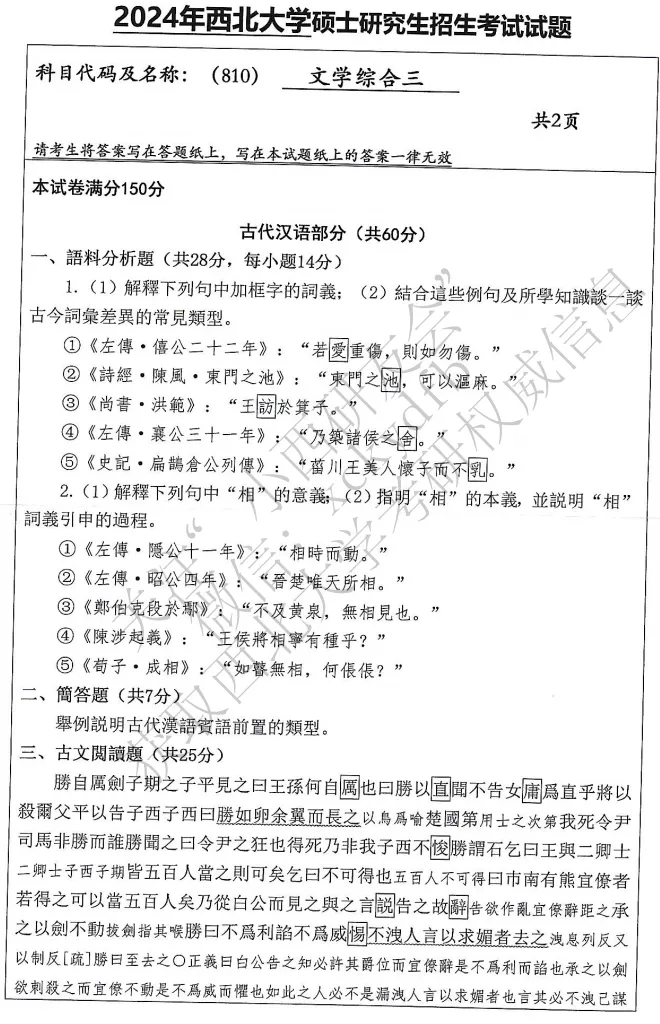 2024年西北大学硕士研究生招生考试试题
科目代码及名称：（810） 文学综合三
共2页
请考生将答案写在答题纸上，写在本试题纸上的答案一律无效
本试卷满分150分
古代汉语部分（共60分）
一、語料分析題（共28分，每小题14分）
1.（1）解釋下列句中加框字的詞義；（2）結合這些例句及所學知識談一談
古今詞彙差異的常見類型。
①《左傳·僖公二十二年》：“若愛重傷，則如勿傷。”
②《詩經·陳風·東門之池》：“東門之池，可以漚麻。”
③《尚書·洪範》：“王訪於箕子。”
④《左傳·襄公三十一年》：“乃築諸侯之舍。”
⑤《史記·扁鵲倉公列傳》：“菑川王美人懷子而不乳。”
2.（1）解釋下列句中“相”的意義；（2）指明“相”的本義，並説明“相”
詞義引申的過程。
①《左傳·隱公十一年》：“相時而動。”
②《左傳·昭公四年》：“晉楚唯天所相。”
③《鄭伯克段於鄢》：“不及黄泉，無相見也。”
④《陳涉起義》：“王侯將相寧有種乎？”
⑤《荀子·成相》：“如瞽無相，何倀倀？”
二、簡答題（共7分）
舉例説明古代漢語賓語前置的類型。
三、古文閲讀題（共25分）
勝自厲劍子期之子平見之曰王孫何自厲也曰勝以直聞不告女庸爲直乎將以
殺爾父平以告子西子西曰勝如卵余翼而長之以鳥爲喻楚國第用士之次第我死令尹
司馬非勝而誰勝聞之曰令尹之狂也得死乃非我子西不悛勝謂石乞曰王與二卿士
二卿士子西子期皆五百人當之則可矣乞曰不可得也五百人不可得曰市南有熊宜僚者
若得之可以當五百人矣乃從白公而見之與之言説告之故辭告欲作亂宜僚辭距之承
之以劍不動拔劍指其喉勝曰不爲利諂不爲威惕不洩人言以求媚者去之洩息列反又
以制反[疏]勝曰至去之○正義曰白公告之知必許其爵位而宜僚辭是不爲利而諂也承之以劍
欲刺殺之而宜僚不動是不爲威而懼也如此之人必不是漏洩人言以求媚者也言其必不洩己謀